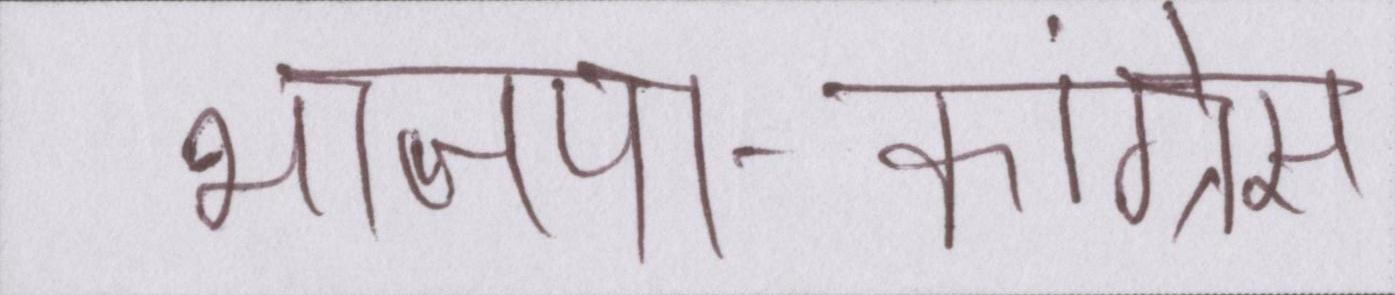 भाजपा-कांग्रेस